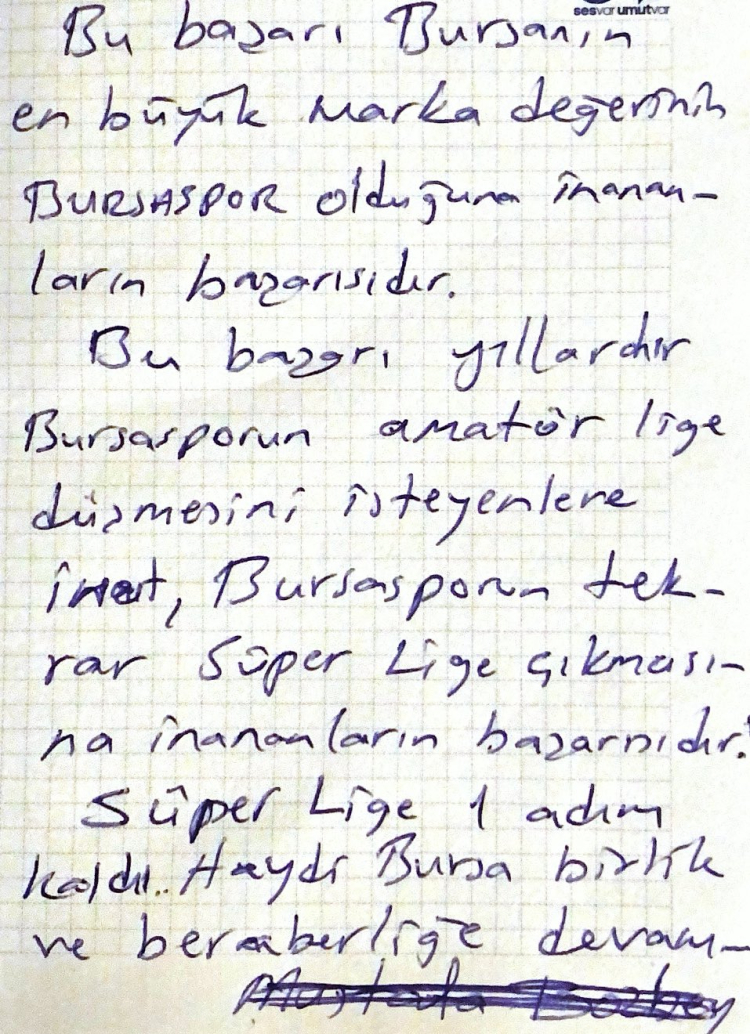 sesvar umutvar
Bu başarı Bursanın
en büyük marka değerinin
BURSASPOR olduğuna inanan-
ların başarısıdır.
Bu başarı yıllardır
Bursasporun amatör lige
düşmesini isteyenlere
inat, Bursasporun tek-
rar Süper Lige çıkması-
na inananların başarısıdır.
Süper Lige 1 adım
kaldı.. Haydi Bursa birlik
ve beraberliğe devam-